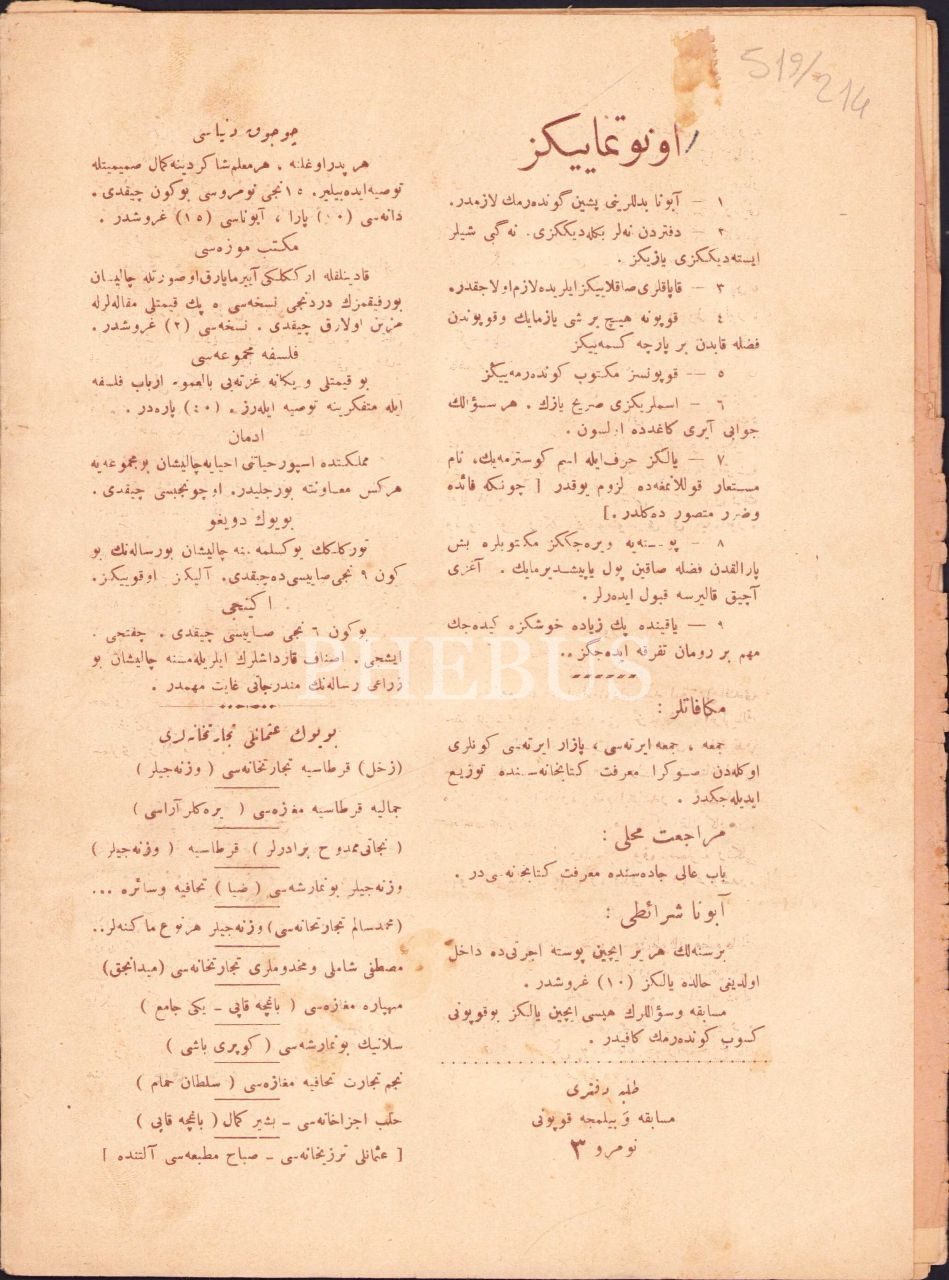 519/214
اونوتمایيكز
١ — آبونا بدللرینی پشین گوندەرمك لازمدر.
٢ — دفتردن نەلر بكلەدیككزی. نەگبی شیلر
ایستەدیككزی یازیكز .
٣ — قاپاقلری صاقلاییكز ایلریدە لازم اولاجقدر.
٤ — قوپونە هیچ بر شی یازمایك وقوپوندن
فضلە قابدن بر پارچە كسمەییكز
٥ — قوپونسز مكتوب كوندەرمەییكز
٦ — اسملریكزی صریح یازك . هر سؤالك
جوابی آیری كاغددە اولسون .
٧ — یالكز حرف ایلە اسم كوسترمەیك، نام
مستعار قوللانمغەدە لزوم یوقدر [ چونكە فائدە
وضرر متصور دەكلدر. ]
٨ — پوستەیە ویرەجككز مكتوبلرە بش
پارالقدن فضلە صاقین پول یاپیشدیرمایك . آغزی
آچیق قالیرسە قبول ایدەرلر .
٩ — یاقیندە پك زیادە خوشكزە كیدەجك
مهم بر رومان تفرقە ایدەجكز ..
مكافاتلر :
جمعە ، جمعە ایرتەسی ، پازار ایرتەسی كونلری
اوكلەدن صوكرا معرفت كتابخانەسندە توزیع
ایدیلەجكدر .
مراجعت محلی :
باب عالی جادەسندە معرفت كتابخانەسیدر .
آبونا شرائطی :
برسنەلك هریر ایچین پوستە اجرتیدە داخل
اولدیغی حالدە یالكز (١٠) غروشدر .
مسابقە وسؤاللرك هپسی ایچین یالكز بوقوپونی
كسوب كوندەرمك كافیدر .
طلبە دفتری
مسابقە و بیلمجە قوپونی
نومرو ٣
چوجوق دنیاسی
هر پدر اوغلنە . هر معلم شاكردینە كمال صمیمیتلە
توصیە ایدەبیلیر. ١٥ نجی نومروسی بوكون چیقدی.
دانەسی (١٠) پارا ، آبوناسی (١٥) غروشدر .
مكتب موزەسی
قادینلقلە اركككلكی آییرمایارق او صورتلە چالیشان
بورفیقمزك دردنجی نسخەسی دە پك قیمتلی مقالەلرلە
مزین اولارق چیقدی . نسخەسی (٢) غروشدر.
فلسفە مجموعەسی
بو قیمتلی و یكانە غزتەیی بالعموم ارباب فلسفە
ایلە متفكرینە توصیە ایلەرز. (٤٠) پارەدر .
ادمان
مملكتدە اسپور حیاتنی احیایە چالیشان بو مجموعەیە
هركس معاونتە بورجلیدر. اوچونجیسی چیقدی.
بویوك دویغو
توركلكك یوكسلمەسنە چالیشان بورسالەنك بو
كون ٩ نجی صاییسی دە چیقدی. آلیكز اوقوییكز.
اكینجی
بوكون ٦ نجی صاییسی چیقدی . چفتجی .
ایشجی . اصناف قارداشلرك ایلریلەمسنە چالیشان بو
زراعی رسالەنك مندرجاتی غایت مهمدر .
بویوك عثمانلی تجارتخانەلری
(زحل) قرطاسیە تجارتخانەسی ( وزنەجیلر )
جمالیە قرطاسیە مغازەسی ( یرەكلر آراسی )
( نجاتی ممدوح برادرلر ) قرطاسیە ( وزنەجیلر )
وزنەجیلر بونمارشەسی ( ضیا ) تحافیە وسائرە ...
(محمد سالم تجارتخانەسی) وزنەجیلر هر نوع ماكنەلر..
مصطفی شاملی ومخدوملری تجارتخانەسی (میدانجق)
مهپارە مغازەسی ( باغچە قاپی ـ یكی جامع )
سلانیك بونمارشەسی ( كوپری باشی )
نجم تجارت تحافیە مغازەسی ( سلطان حمام )
حلب اجزاخانەسی ـ بشیر كمال ( باغچە قاپی )
[ عثمانلی ترزیخانەسی ـ صباح مطبعەسی آلتندە ]
PHEBUS